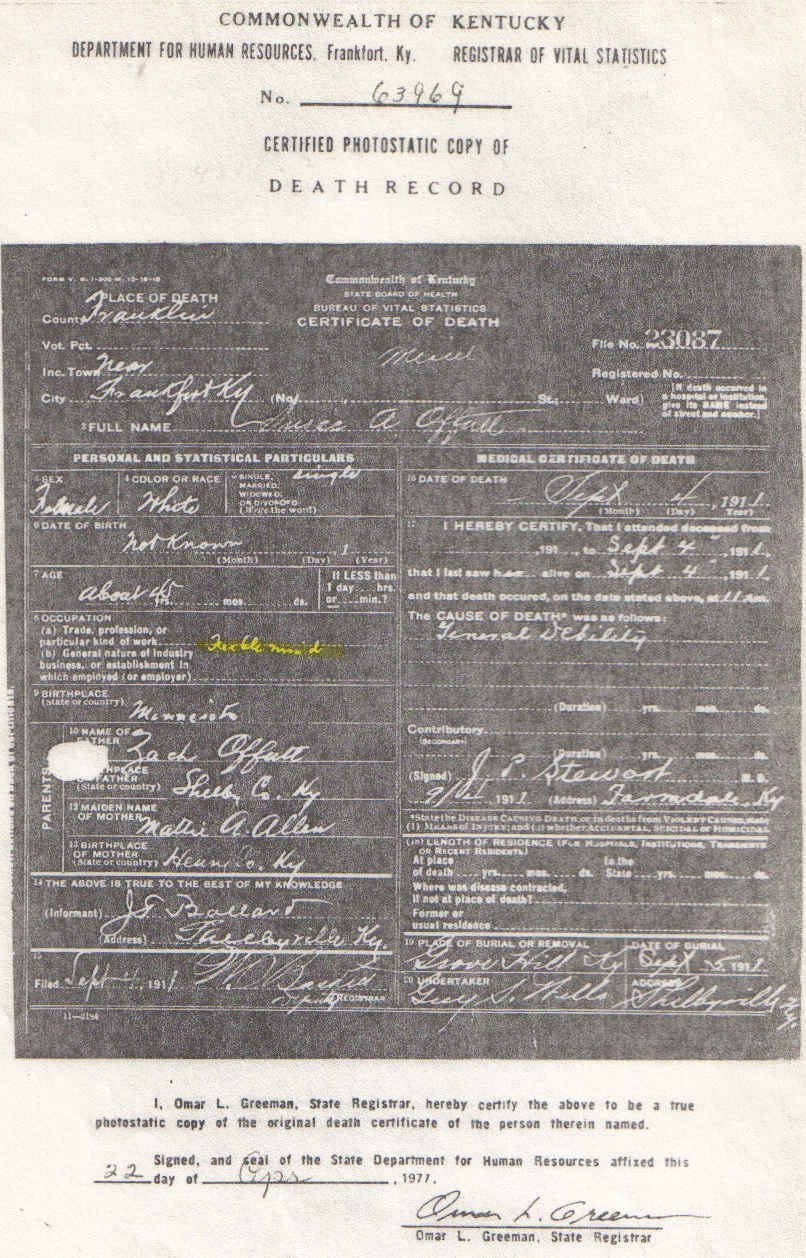 COMMONWEALTH OF KENTUCKY
DEPARTMENT FOR HUMAN RESOURCES, Frankfort, Ky. REGISTRAR OF VITAL STATISTICS
No. 63969
CERTIFIED PHOTOSTATIC COPY OF
DEATH RECORD
Commonwealth of Kentucky
STATE BOARD OF HEALTH
BUREAU OF VITAL STATISTICS
CERTIFICATE OF DEATH
PLACE OF DEATH
County Franklin
Vot. Pct.
Inc. Town near
City Frankfort Ky (No. St.; Ward)
File No. 23087
Registered No.
(If death occurred in a hospital or institution, give its NAME instead of street and number.)
2 FULL NAME A. Offutt
PERSONAL AND STATISTICAL PARTICULARS
3 SEX Female
4 COLOR OR RACE White
5 SINGLE, MARRIED, WIDOWED, OR DIVORCED (Write the word) single
6 DATE OF BIRTH
not Known , 1
(Month) (Day) (Year)
7 AGE
about 45 yrs. mos. ds.
If LESS than 1 day hrs. or min.?
8 OCCUPATION
(a) Trade, profession, or
particular kind of work
(b) General nature of industry
business, or establishment in
which employed (or employer)
Feeble mind
9 BIRTHPLACE
(State or country) Minnesota
PARENTS
10 NAME OF FATHER Zach Offutt
BIRTHPLACE OF FATHER
(State or country) Shelby Co. Ky
12 MAIDEN NAME
OF MOTHER Mattie A. Allen
13 BIRTHPLACE
OF MOTHER
(State or country) Henry Co. Ky
14 THE ABOVE IS TRUE TO THE BEST OF MY KNOWLEDGE
(Informant) J. T. Ballard
(Address) Shelbyville Ky.
15
Filed Sept 4, 1911
Deputy REGISTRAR
11-2184
MEDICAL CERTIFICATE OF DEATH
16 DATE OF DEATH
Sept 4, 1911
(Month) (Day) (Year)
17 I HEREBY CERTIFY, That I attended deceased from
191 to Sept 4, 1911,
that I last saw her alive on Sept 4, 1911
and that death occured, on the date stated above, at 11 a.m.
The CAUSE OF DEATH* was as follows:
General Debility
(Duration) yrs. mos. ds.
Contributory
(SECONDARY)
(Duration) yrs. mos. ds.
(Signed) J. P. Stewart M. D.
1911 (Address) Farmdale, Ky
*State the DISEASE CAUSING DEATH, or in deaths from VIOLENT CAUSES, state
(1) MEANS OF INJURY; and (2) whether ACCIDENTAL, SUICIDAL or HOMICIDAL
(18) LENGTH OF RESIDENCE (FOR HOSPITALS, INSTITUTIONS, TRANSIENTS
OR RECENT RESIDENTS.)
At place of death yrs. mos. ds. In the State yrs. mos. ds.
Where was disease contracted,
if not at place of death?
Former or
usual residence
19 PLACE OF BURIAL OR REMOVAL DATE OF BURIAL
Grove Hill Ky Sept 5, 1911
20 UNDERTAKER ADDRESS
Guy S. Wells Shelbyville Ky.
I, Omar L. Greeman, State Registrar, hereby certify the above to be a true
photostatic copy of the original death certificate of the person therein named.
Signed, and seal of the State Department for Human Resources affixed this
22 day of Apr , 1977.
Omar L. Greeman
Omar L. Greeman, State Registrar